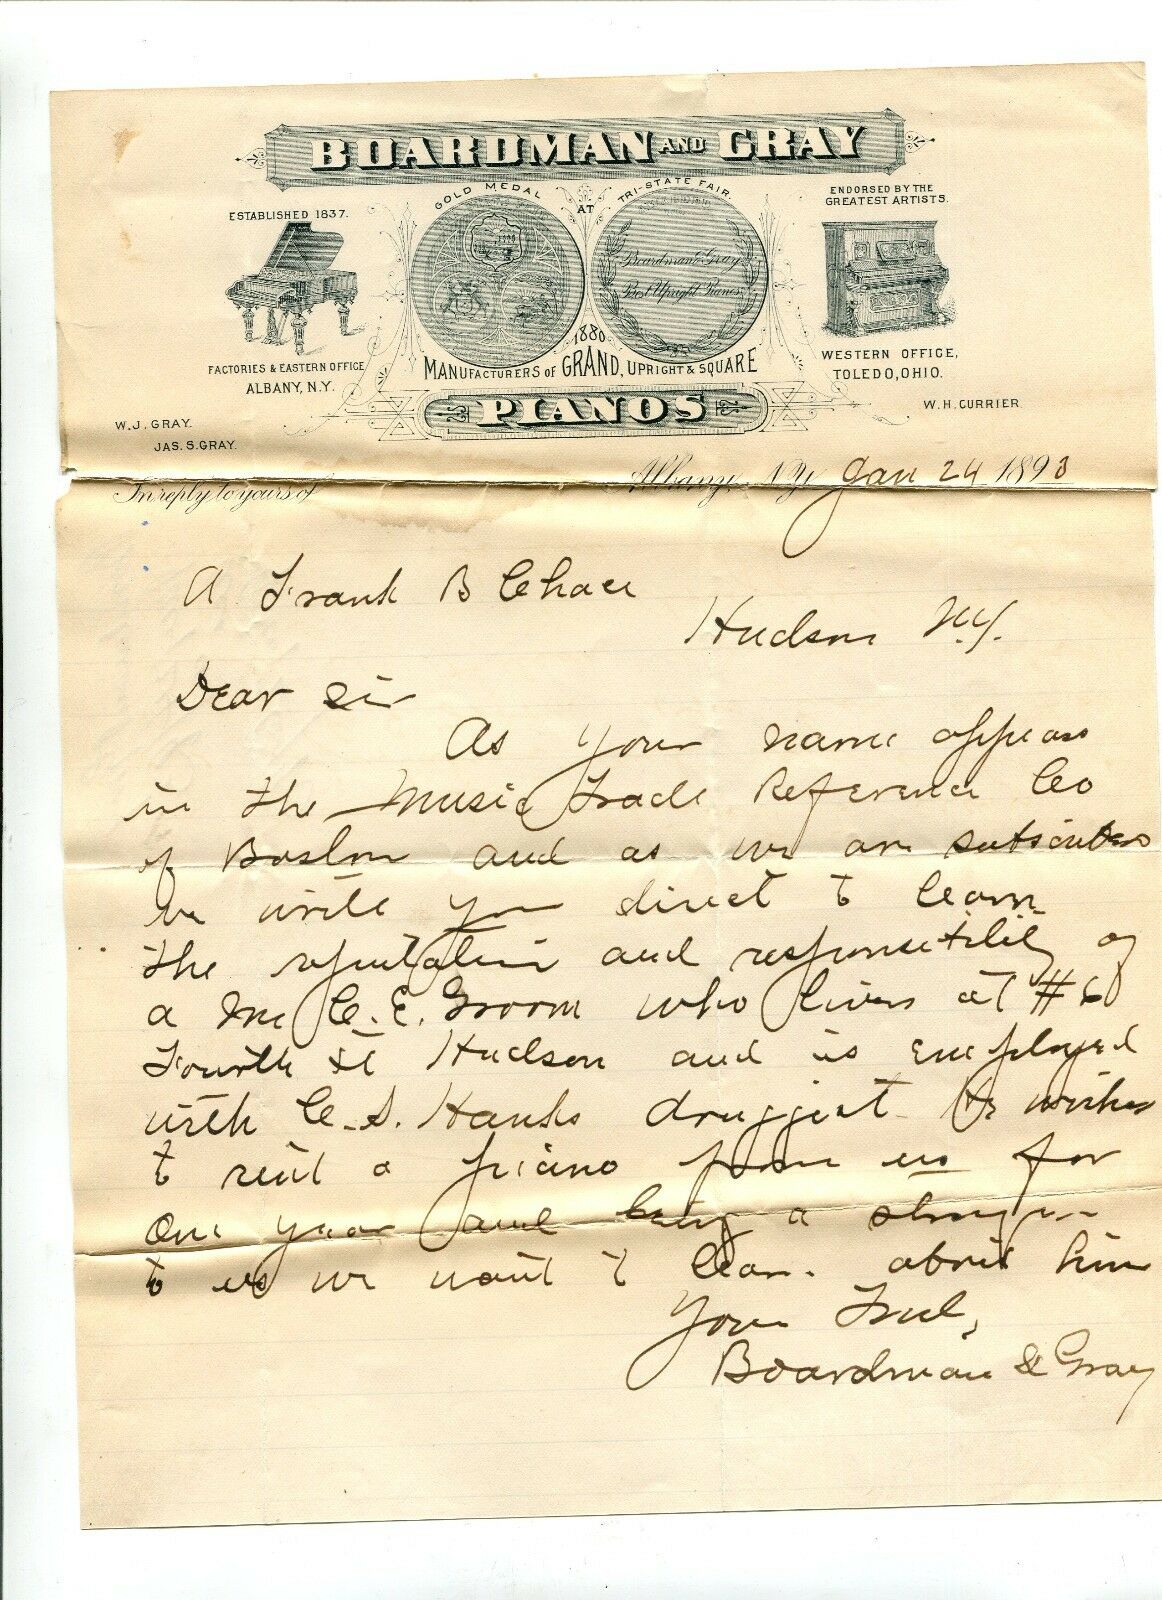 BOARDMAN AND GRAY
GOLD MEDAL AT TRI-STATE FAIR.
ESTABLISHED 1837.
ENDORSED BY THE
GREATEST ARTISTS.
Boardman & Gray
Best Upright Pianos
1880
MANUFACTURERS OF GRAND, UPRIGHT & SQUARE
PIANOS
FACTORIES & EASTERN OFFICE
ALBANY, N.Y.
WESTERN OFFICE,
TOLEDO, OHIO.
W.H. CURRIER.
W.J. GRAY.
JAS. S. GRAY.
In reply to yours of
Albany, N.Y. Jan 24 1893
A Frank B Chace
Hudson N.Y.
Dear Sir
As your name appears
in the Music Trade Reference Co
of Boston and as we are subscribers
we write you direct to learn
the reputation and responsibility of
a Mr C. E. Groom who lives at #6
Fourth St Hudson and is employed
with C. S. Hanks druggist He wishes
to rent a piano from us for
one year and being a stranger
to us we want to learn about him
Yours Truly,
Boardman & Gray